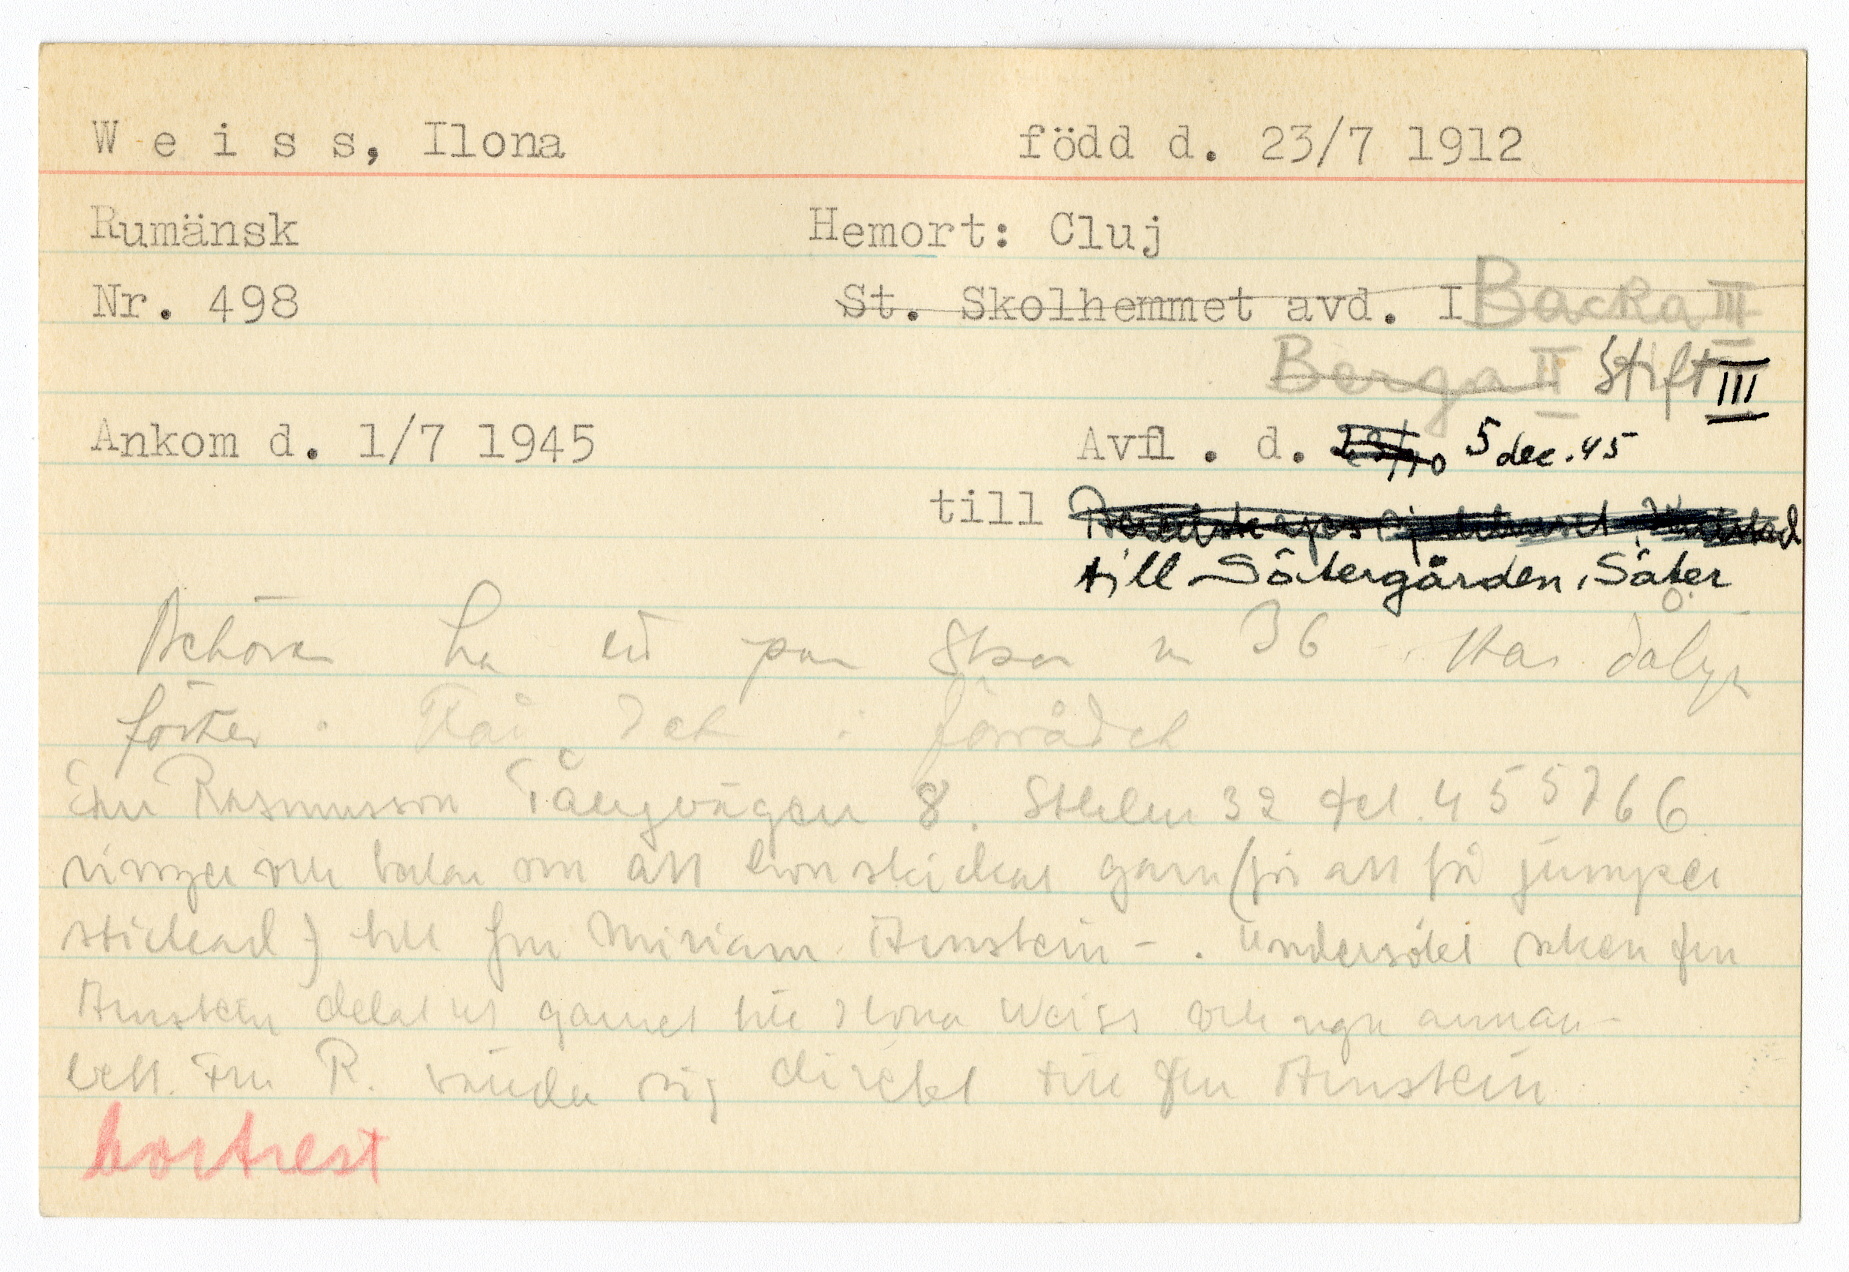 W e i s s, Ilona född d. 23/7 1912
Rumänsk Hemort: Cluj
Nr. 498 St. Skolhemmet avd. I Backa III
Berga II Stift III
Ankom d. 1/7 1945 Avfl. d. 23/10 5 dec. 45
till
till Sätergården, Säter
Behöver ha ett par skor n 36. Har dåliga
fötter. Få det i förrådet
Rasmusson Tångvägen 8. Sthlm 32 tel. 455766
ringer och talar om att hon skickat garn (för att få jumper
stickad) till fru Miriam Arnstein -. Undersökt saken fru
Arnstein delat ut garnet till Ilona Weiss och ngn annan -
rätt. Fru R. vänder sig direkt till fru Arnstein
bortrest